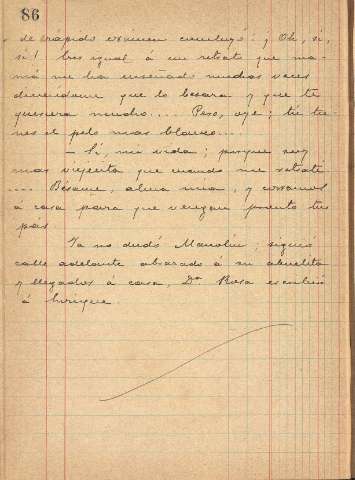 86
de rapido examen concluyó: ¡Oh, si,
si! Eres igual á un retrato que ma-
má me ha enseñado muchas veces
diciendome que lo besara y que te
quisiera mucho.... Pero, oye; tu tie-
nes el pelo mas blanco...
- Si, mi vida; porque soy
mas viejecita que cuando me retraté
.... Bésame, alma mia, y corramos
á casa para que vengan pronto tus
pás.
Ya no dudó Manolin; siguió
calle adelante abrazado á su abuelita
y llegados á casa, Dª Rosa escribió
á Enrique.